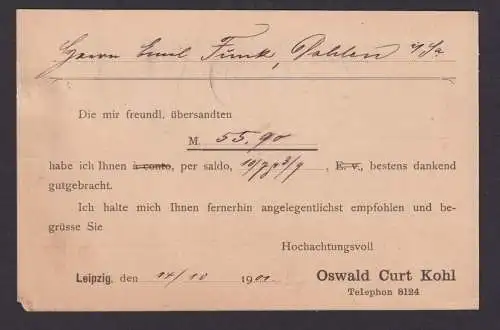 Herrn Emil Funk, Dahlen i/Sa
Die mir freundl. übersandten
M. 55.90
habe ich Ihnen à conto, per saldo, E. v., bestens dankend
gutgebracht.
Ich halte mich Ihnen fernerhin angelegentlichst empfohlen und be-
grüsse Sie
Hochachtungsvoll
Leipzig, den 14/10 1901
Oswald Curt Kohl
Telephon 8124